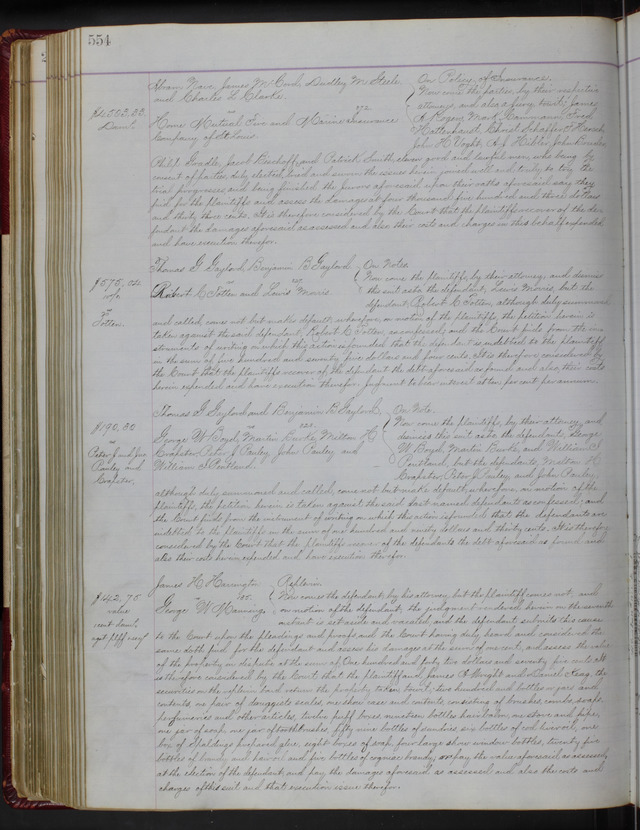 554
Hiram Ware, James M Cord, Dudley M Steele On Policy of Insurance.
and Charles L Clarke. Now come the parties, by their respective
$4,553.33. vs 272 attorneys, and also a jury, to wit: James
Dam. Home Mutual Fire and Marine Insurance A Rogers, Mark Hammann, Fred
Company of St Louis. Hattenhaust, Christ Schaffer,
John H Voght, A J Hibler, John
Philip Gradle, Jacob Bischoff, and Patrick Smith, eleven good and lawful men, who being by
consent of parties, duly elected, tried and sworn the issues herein joined well and truly to try, the
trial progresses and being finished the Jurors aforesaid upon their oaths aforesaid say they
find for the plaintiffs and assess the damages at four thousand five hundred and three dollars
and thirty three cents. It is therefore considered by the Court that the plaintiffs recover of the de-
fendant the damages aforesaid as assessed and also their costs and charges in this behalf expended
and have execution therefor.
Thomas G Gaylord, Benjamin B Gaylord On Notes.
vs Now come the plaintiffs, by their attorney, and dismiss
$575.04 Robert C Totten and Lewis Morris. the suit as to the defendant, Lewis Morris, but the
vs defendant, Robert C Totten, although duly summoned
Totten. and called, comes not but makes default; wherefore, on motion of the plaintiffs, the petition herein is
taken against the said defendant, Robert C Totten, as confessed; and the Court finds from the in-
struments of writing on which this action is founded that the defendant is indebted to the plaintiffs
in the sum of five hundred and seventy five dollars and four cents. It is therefore considered by
the Court that the plaintiffs recover of the defendant the debt aforesaid as found and also their costs
herein expended and have execution therefor. Judgment to bear interest at ten per cent per annum.
Thomas G Gaylord and Benjamin B Gaylord, On Note.
$190.30 vs Now come the plaintiffs, by their attorney, and
vs George W Boyd, Martin Burke, Milton H dismiss the suit as to the defendants, George
Peter J and Jno Crapster, Peter J Pauley, John Pauley and W Boyd, Martin Burke, and William I
Pauley and William I Pentland. Pentland, but the defendants, Milton H
Crapster. Crapster, Peter J Pauley, and John Pauley,
although duly summoned and called, come not but make default; wherefore, on motion of the
plaintiffs, the petition herein is taken against the said last named defendants as confessed; and
the Court finds from the instrument of writing on which this action is founded that the defendants are
indebted to the plaintiffs in the sum of one hundred and ninety dollars and thirty cents. It is therefore
considered by the Court that the plaintiffs recover of the defendants the debt aforesaid as found and
also their costs herein expended and have execution therefor.
James H Harrington Replevin.
$142.75 vs Now comes the defendant, by his attorney, but the plaintiff comes not, and
value George W Mannings. on motion of the defendant, the judgment rendered herein on the seventh
1 cent dam. instant is set aside and vacated, and the defendant submits this cause
to the Court upon the pleadings and proofs and the Court having duly heard and considered the
same doth find for the defendant and assess his damages at the sum of one cent, and assess the value
of the property in dispute at the sum of One hundred and forty two dollars and seventy five cents. It
is therefore considered by the Court that the plaintiff and James B Wright and Daniel Teag, the
securities on the replevin bond return the property taken, to wit, two hundred and bottles or jars and
contents, one pair of druggists scales, one show case and contents, consisting of brushes, combs, soaps,
perfumeries and other articles, twelve puff boxes, nineteen bottles hair balm, one stove and pipe,
one jar of soap, one jar of tooth brushes, fifty nine bottles of sundries, six bottles of cod liver oil, one
box of Spaldings prepared glue, eight boxes of soap, four large show window bottles, twenty five
bottles of brandy and hair oil and five bottles of cognac brandy, or pay the value aforesaid as assessed,
at the election of the defendant, and pay the damages aforesaid as assessed, and also the costs and
charges of this suit and that execution issue therefor.